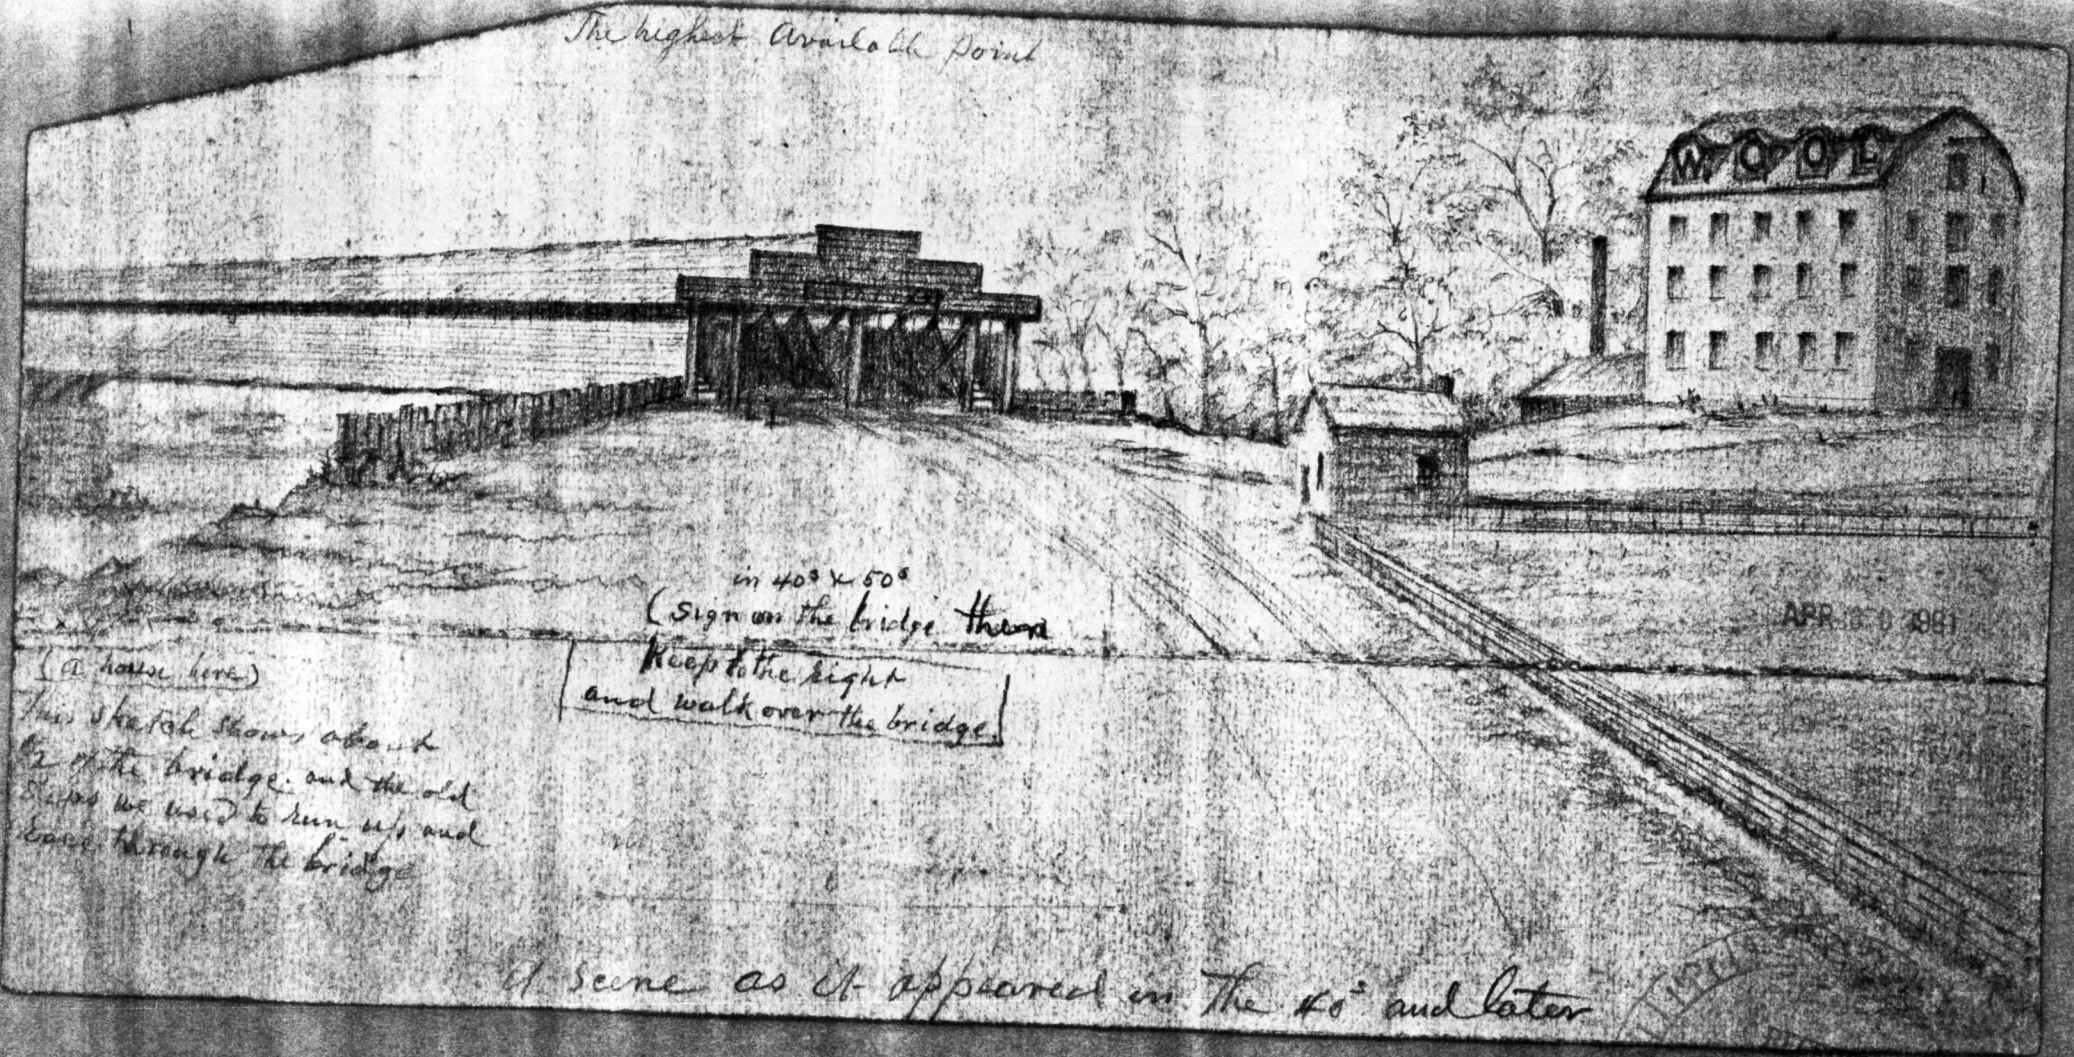 The highest available point
WOOL
in 40s & 50s
(sign on the bridge
Keep to the right
and walk over the bridge.
APR 1981
(a house here)
This sketch shows about
1/2 of the bridge. and the old
steps we used to run up and
through the bridge
A scene as it appeared in the 40s and later